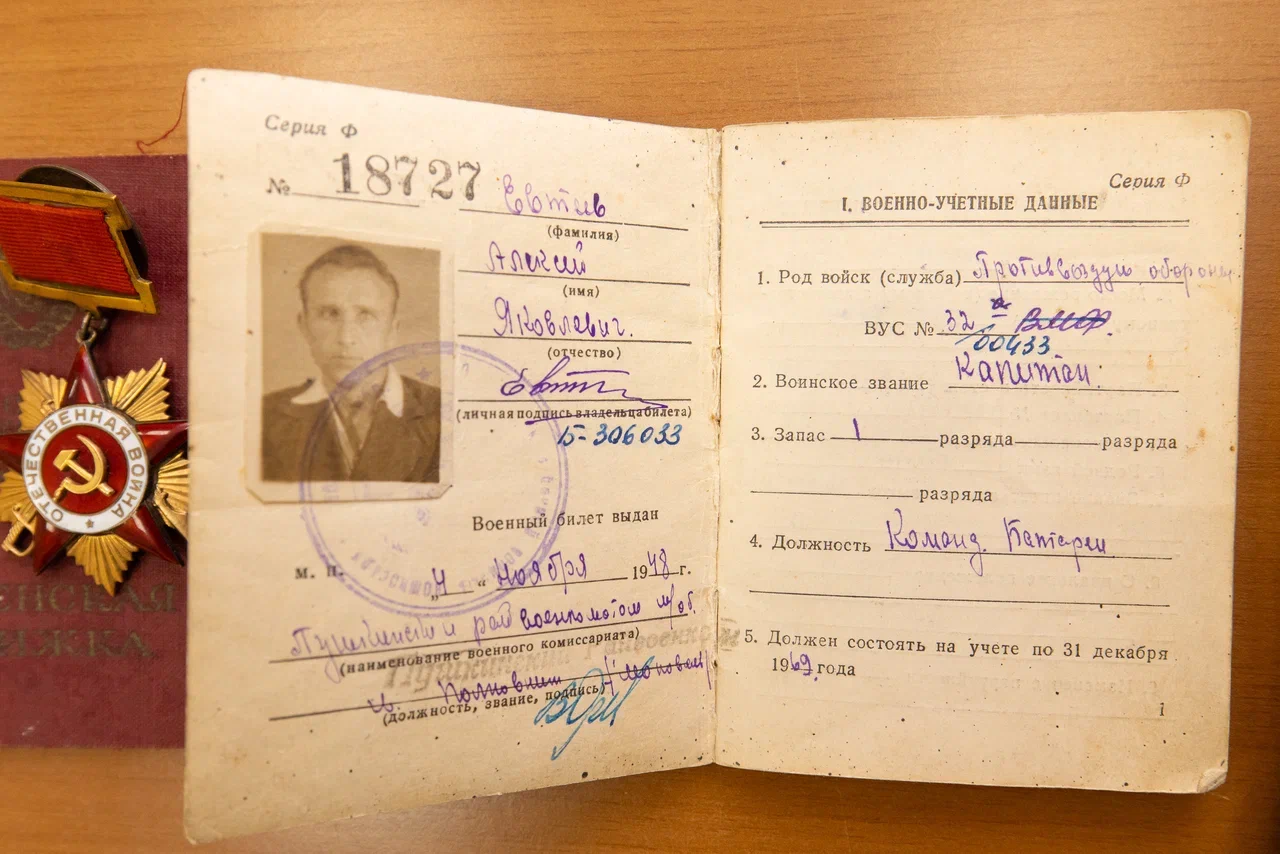 ОТЕЧЕСТВЕННАЯ ВОЙНА
ЕНСКАЯ
ИЖКА
Серия Ф
№ 18727
Евтеев
(фамилия)
Алексей
(имя)
Яковлевич.
(отчество)
(личная подпись владельца билета)
15-306033
Военный билет выдан
М. П. „4“ ноября 1948 г.
райвоенкоматом М/об.
(наименование военного комиссариата)
(должность, звание, подпись)
Серия Ф
I. ВОЕННО-УЧЕТНЫЕ ДАННЫЕ
1. Род войск (служба) обороны
ВУС № 32 а ВМФ.
00433
2. Воинское звание Капитан.
3. Запас 1 разряда разряда
разряда
4. Должность Команд. Батареи
5. Должен состоять на учете по 31 декабря
1969 года
1